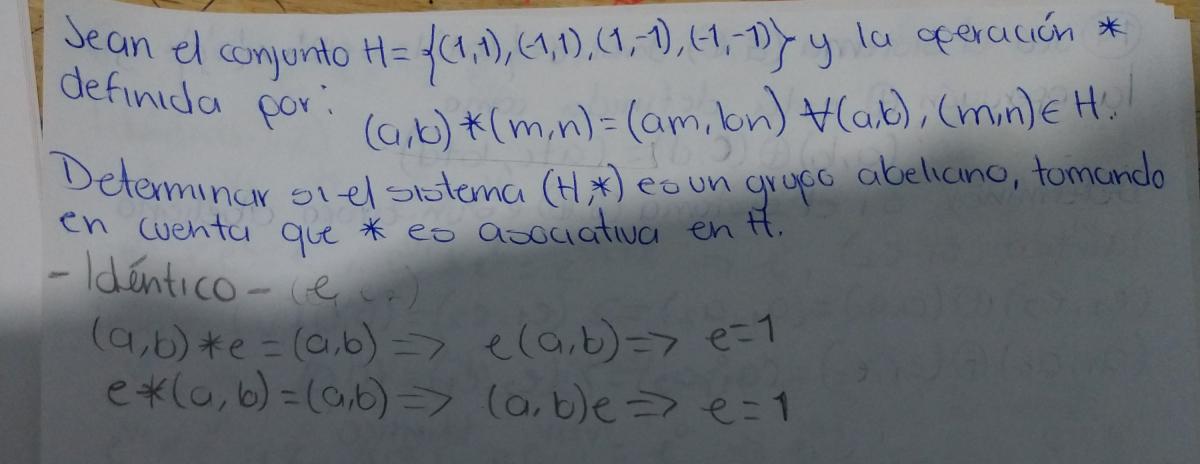 Sean el conjunto H = {(1,1), (-1,1), (1,-1), (-1,-1)} y la operación *
definida por:
(a,b) * (m,n) = (am, bn) ∀(a,b), (m,n) ∈ H.
Determinar si el sistema (H,*) es un grupo abeliano, tomando
en cuenta que * es asociativa en H.
- Idéntico - (e,
(a,b) * e = (a,b) => e(a,b) => e=1
e * (a,b) = (a,b) => (a,b)e => e=1